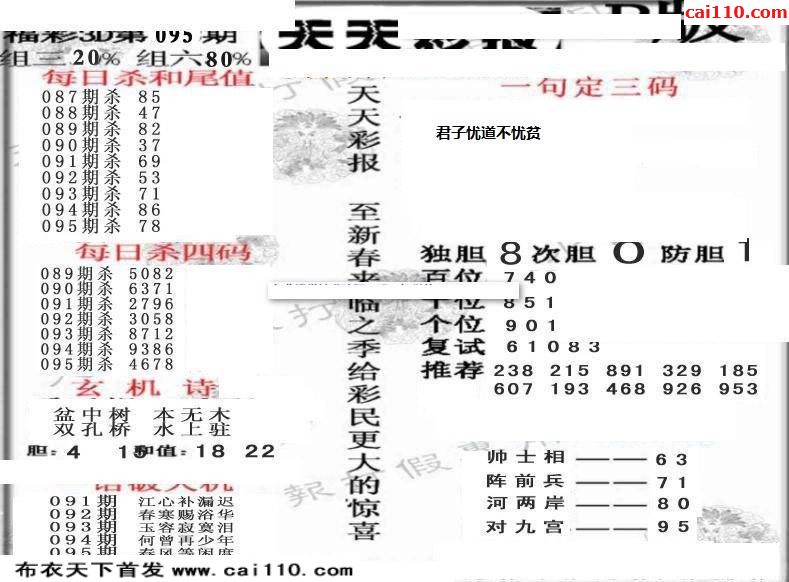 cai110.com
福彩3D第095期
天天彩报
版
组三20% 组六80%
每日杀和尾值
087期杀 85
088期杀 47
089期杀 82
090期杀 37
091期杀 69
092期杀 53
093期杀 71
094期杀 86
095期杀 78
每日杀四码
089期杀 5082
090期杀 6371
091期杀 2796
092期杀 3058
093期杀 8712
094期杀 9386
095期杀 4678
玄机诗
盆中树 本无木
双孔桥 水上驻
胆:4 和值:18 22
091期 江心补漏迟
092期 春寒赐浴华
093期 玉容寂寞泪
094期 何曾再少年
095期 春风等闲度
天天彩报 至新春来临之季给彩民更大的惊喜
一句定三码
君子忧道不忧贫
独胆8 次胆0 防胆1
百位 740
十位 851
个位 901
复试 61083
推荐 238 215 891 329 185
607 193 468 926 953
帅士相———63
阵前兵———71
河两岸———80
对九宫———95
布衣天下首发 www.cai110.com